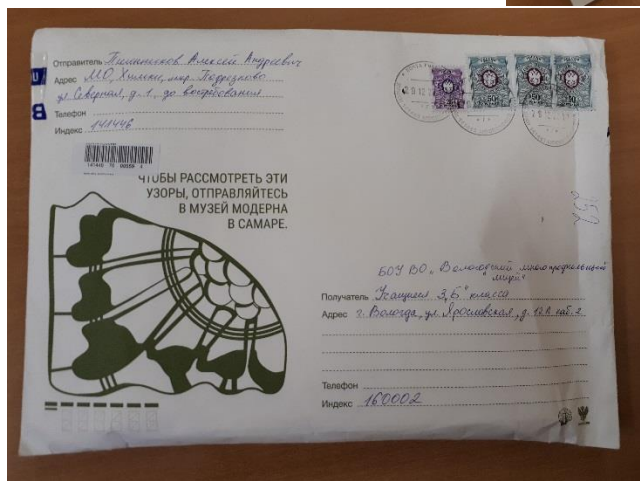 Отправитель Алексей Андреевич
Адрес МО, Химки, мкр. Подрезково
ул. Северная, д. 1, до востребования
Телефон
Индекс 141446
ЧТОБЫ РАССМОТРЕТЬ ЭТИ
УЗОРЫ, ОТПРАВЛЯЙТЕСЬ
В МУЗЕЙ МОДЕРНА
В САМАРЕ.
50
50
БОУ ВО "Вологодский многопрофильный
лицей"
Получатель Учащиеся 3 "Б" класса
Адрес г. Вологда, ул. Ярославская, д.
Телефон
Индекс 160002